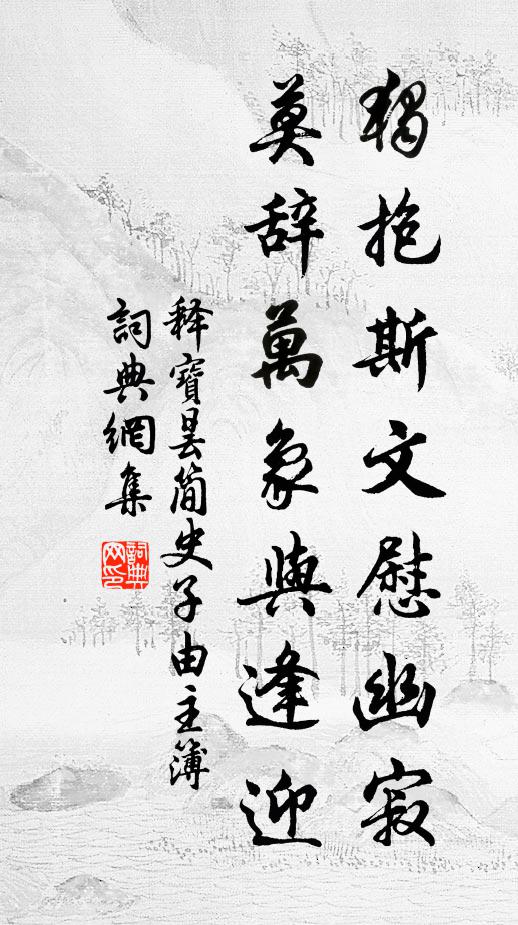 獨抱斯文慰幽寂
莫辞萬象與逢迎
释寶曇简史子由主簿
詞典網集
詞典网印